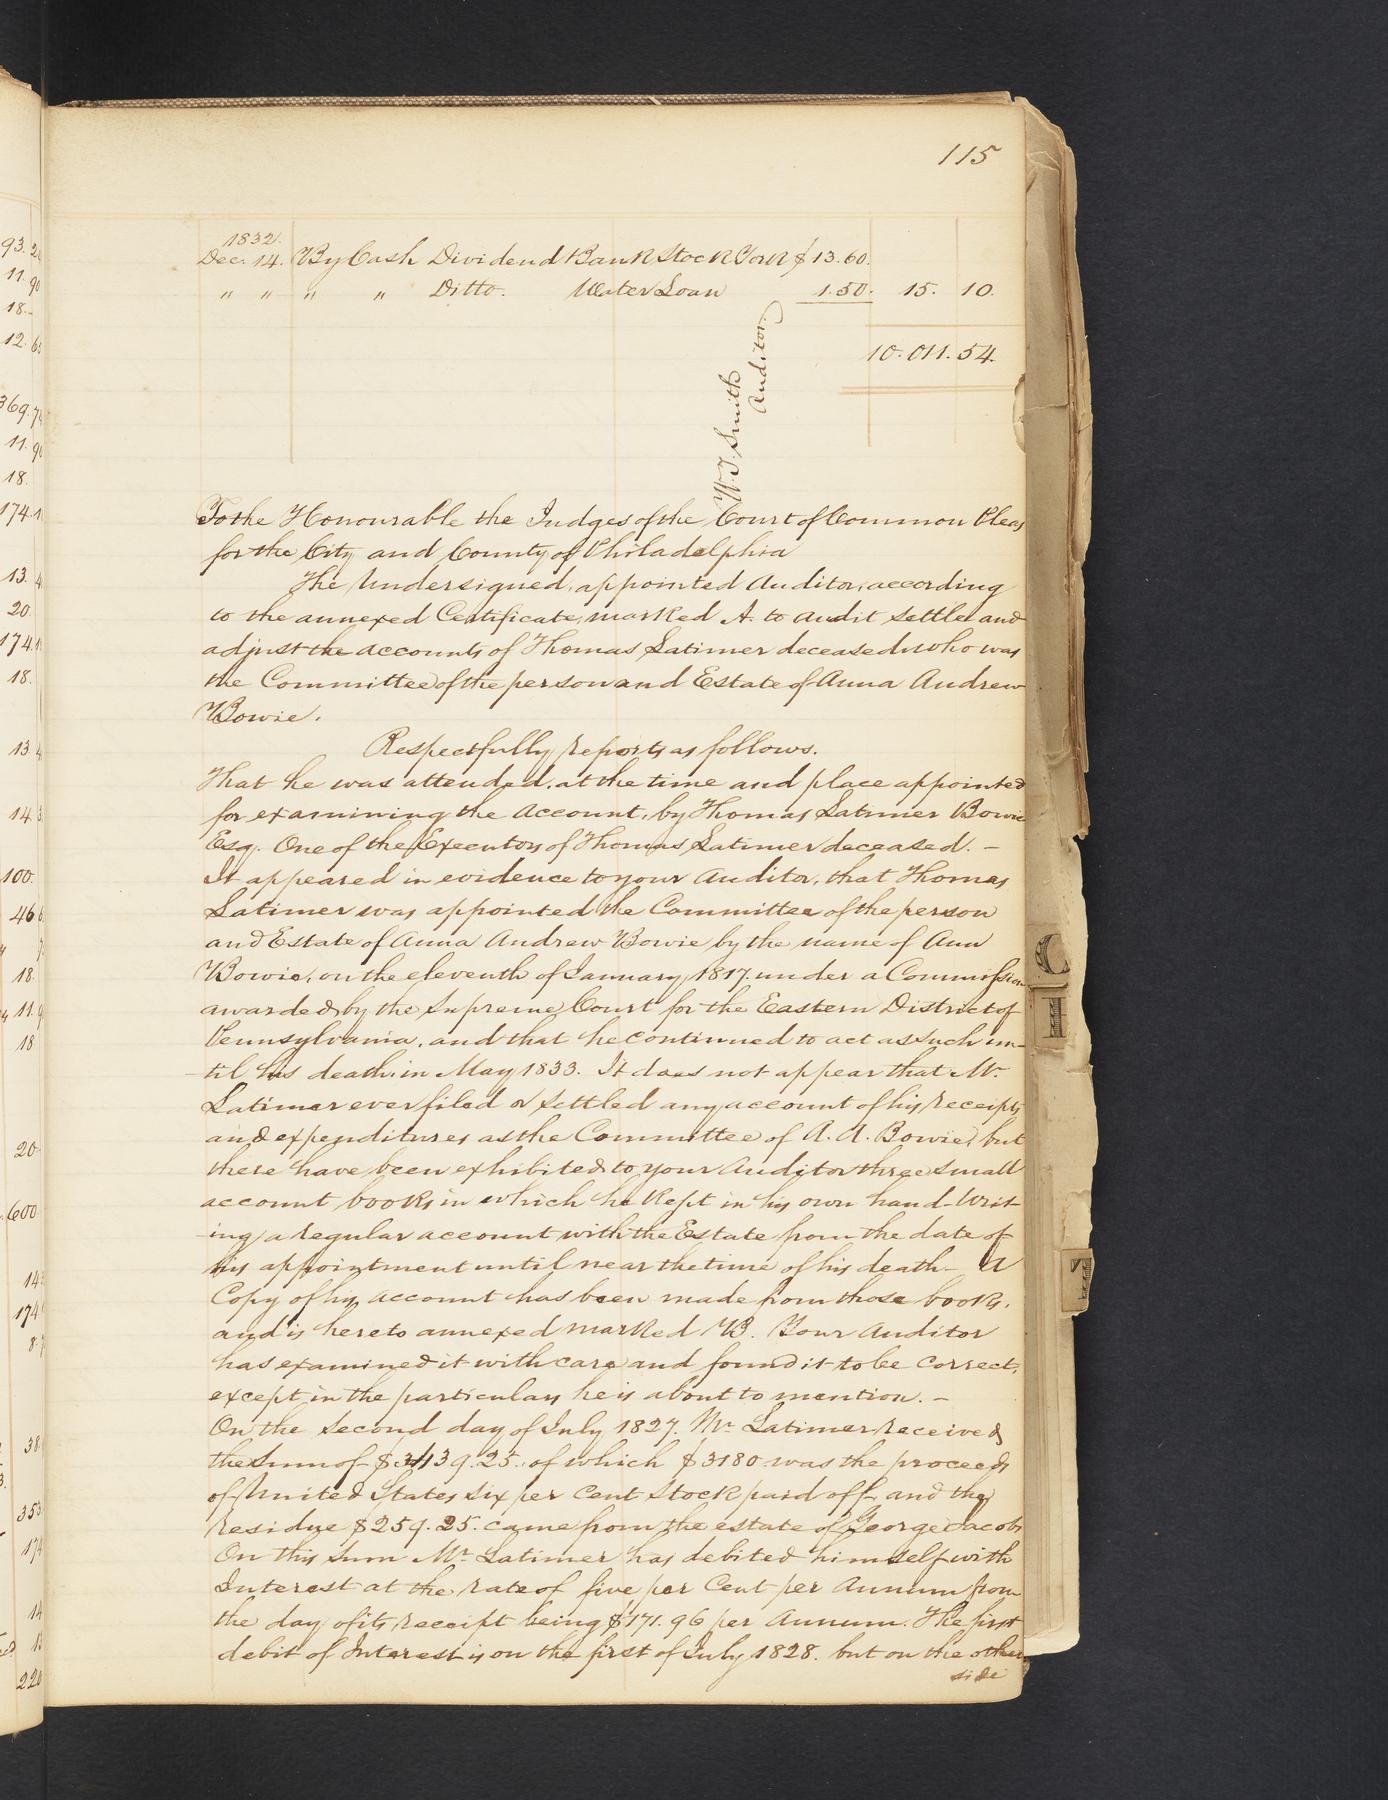 115
1832.
Dec. 14. By Cash Dividend Bank Stock Your $13.60.
" " " " Ditto. Water Loan 1.50. 15. 10.
10.011.54.
W. J. Smith
Auditor.
To the Honourable the Judges of the Court of Common Pleas
for the City and County of Philadelphia
The Undersigned, appointed Auditor, according
to the annexed Certificate, marked A. to audit settle and
adjust the accounts of Thomas Latimer deceased who was
the Committee of the person and Estate of Anna Andrew
Bowie.
Respectfully reports as follows.
That he was attended, at the time and place appointed
for examining the account, by Thomas Latimer Bowie
Esq. One of the Executors of Thomas Latimer deceased. -
It appeared in evidence to your Auditor, that Thomas
Latimer was appointed the Committee of the person
and Estate of Anna Andrew Bowie by the name of Ann
Bowie, on the eleventh of January 1817. under a Commission
awarded by the Supreme Court for the Eastern District of
Pennsylvania, and that he continued to act as such un-
til his death in May 1833. It does not appear that Mr.
Latimer ever filed or settled any account of his receipts
and expenditures as the Committee of A. A. Bowie, but
there have been exhibited to your Auditor three small
account books in which he kept in his own hand-writ-
ing a regular account with the Estate from the date of
his appointment until near the time of his death - A
Copy of his account has been made from those books,
and is hereto annexed marked B. Your Auditor
has examined it with care and found it to be correct,
except in the particulars he is about to mention. -
On the second day of July 1827. Mr. Latimer received
the Sum of $3439.25. of which $3180 was the proceeds
of United States six per cent Stock paid off and the
residue $259.25. came from the estate of George Jacobs
On this Sum Mr. Latimer has debited himself with
Interest at the rate of five per Cent per Annum from
the day of its receipt being $171.96 per Annum. The first
debit of Interest is on the first of July 1828. but on the other
side
93. 24
11. 90
18.-
12.
369. 7
11. 90
18.
174.
13.
20.
174.
18.
13
14
100.
46
18.
11. 9
18
20
600
14
174
8.
38
353
174
14
13
220
C
I
T